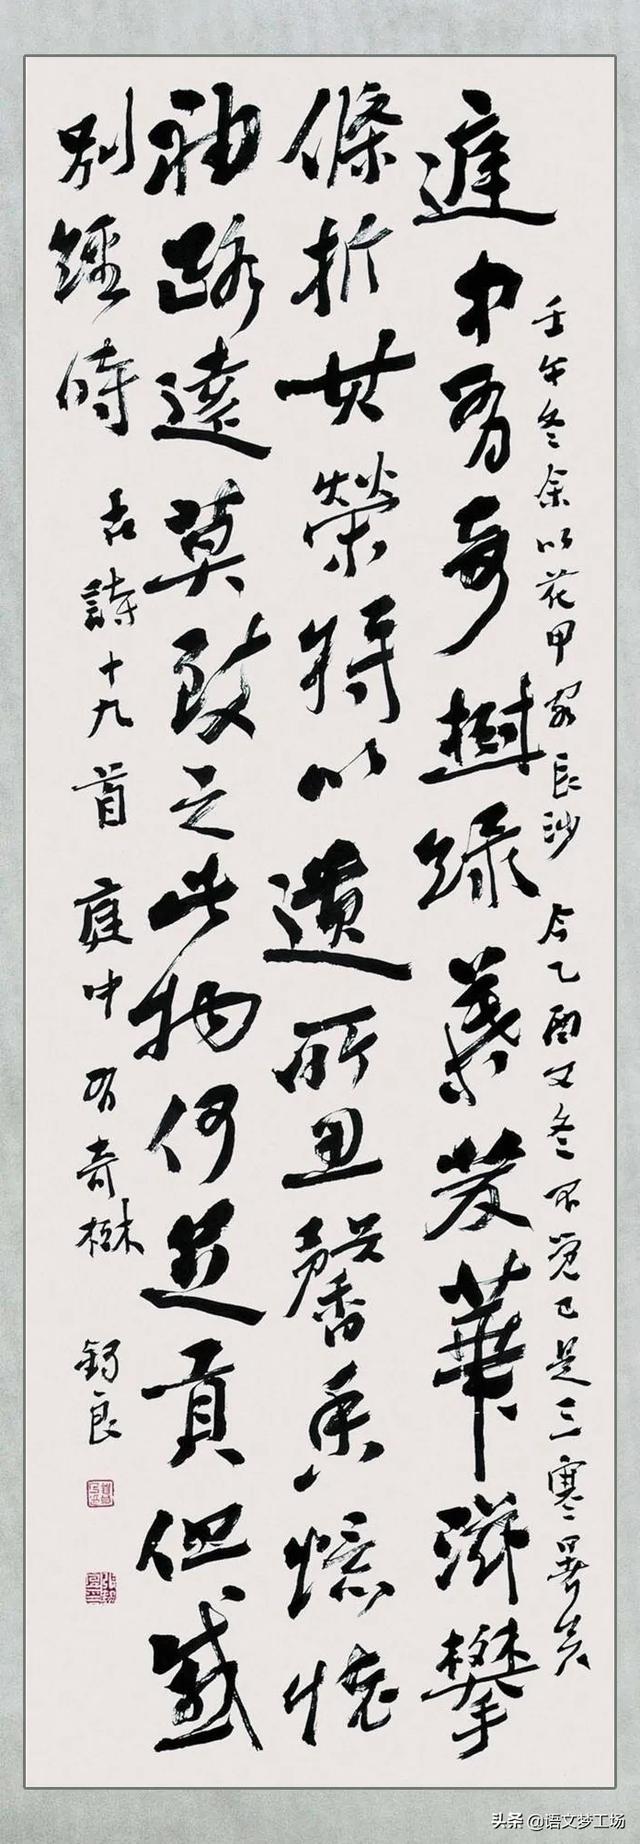 壬午冬余以花甲客長沙 今乙酉又冬不覺已是三寒暑矣
庭中有奇樹綠葉發華滋攀
條折其榮將以遺所思馨香懷
袖路遠莫致之此物何足貢但感
別經時 古詩十九首 庭中有奇樹 錫良
头条 @语文梦工场